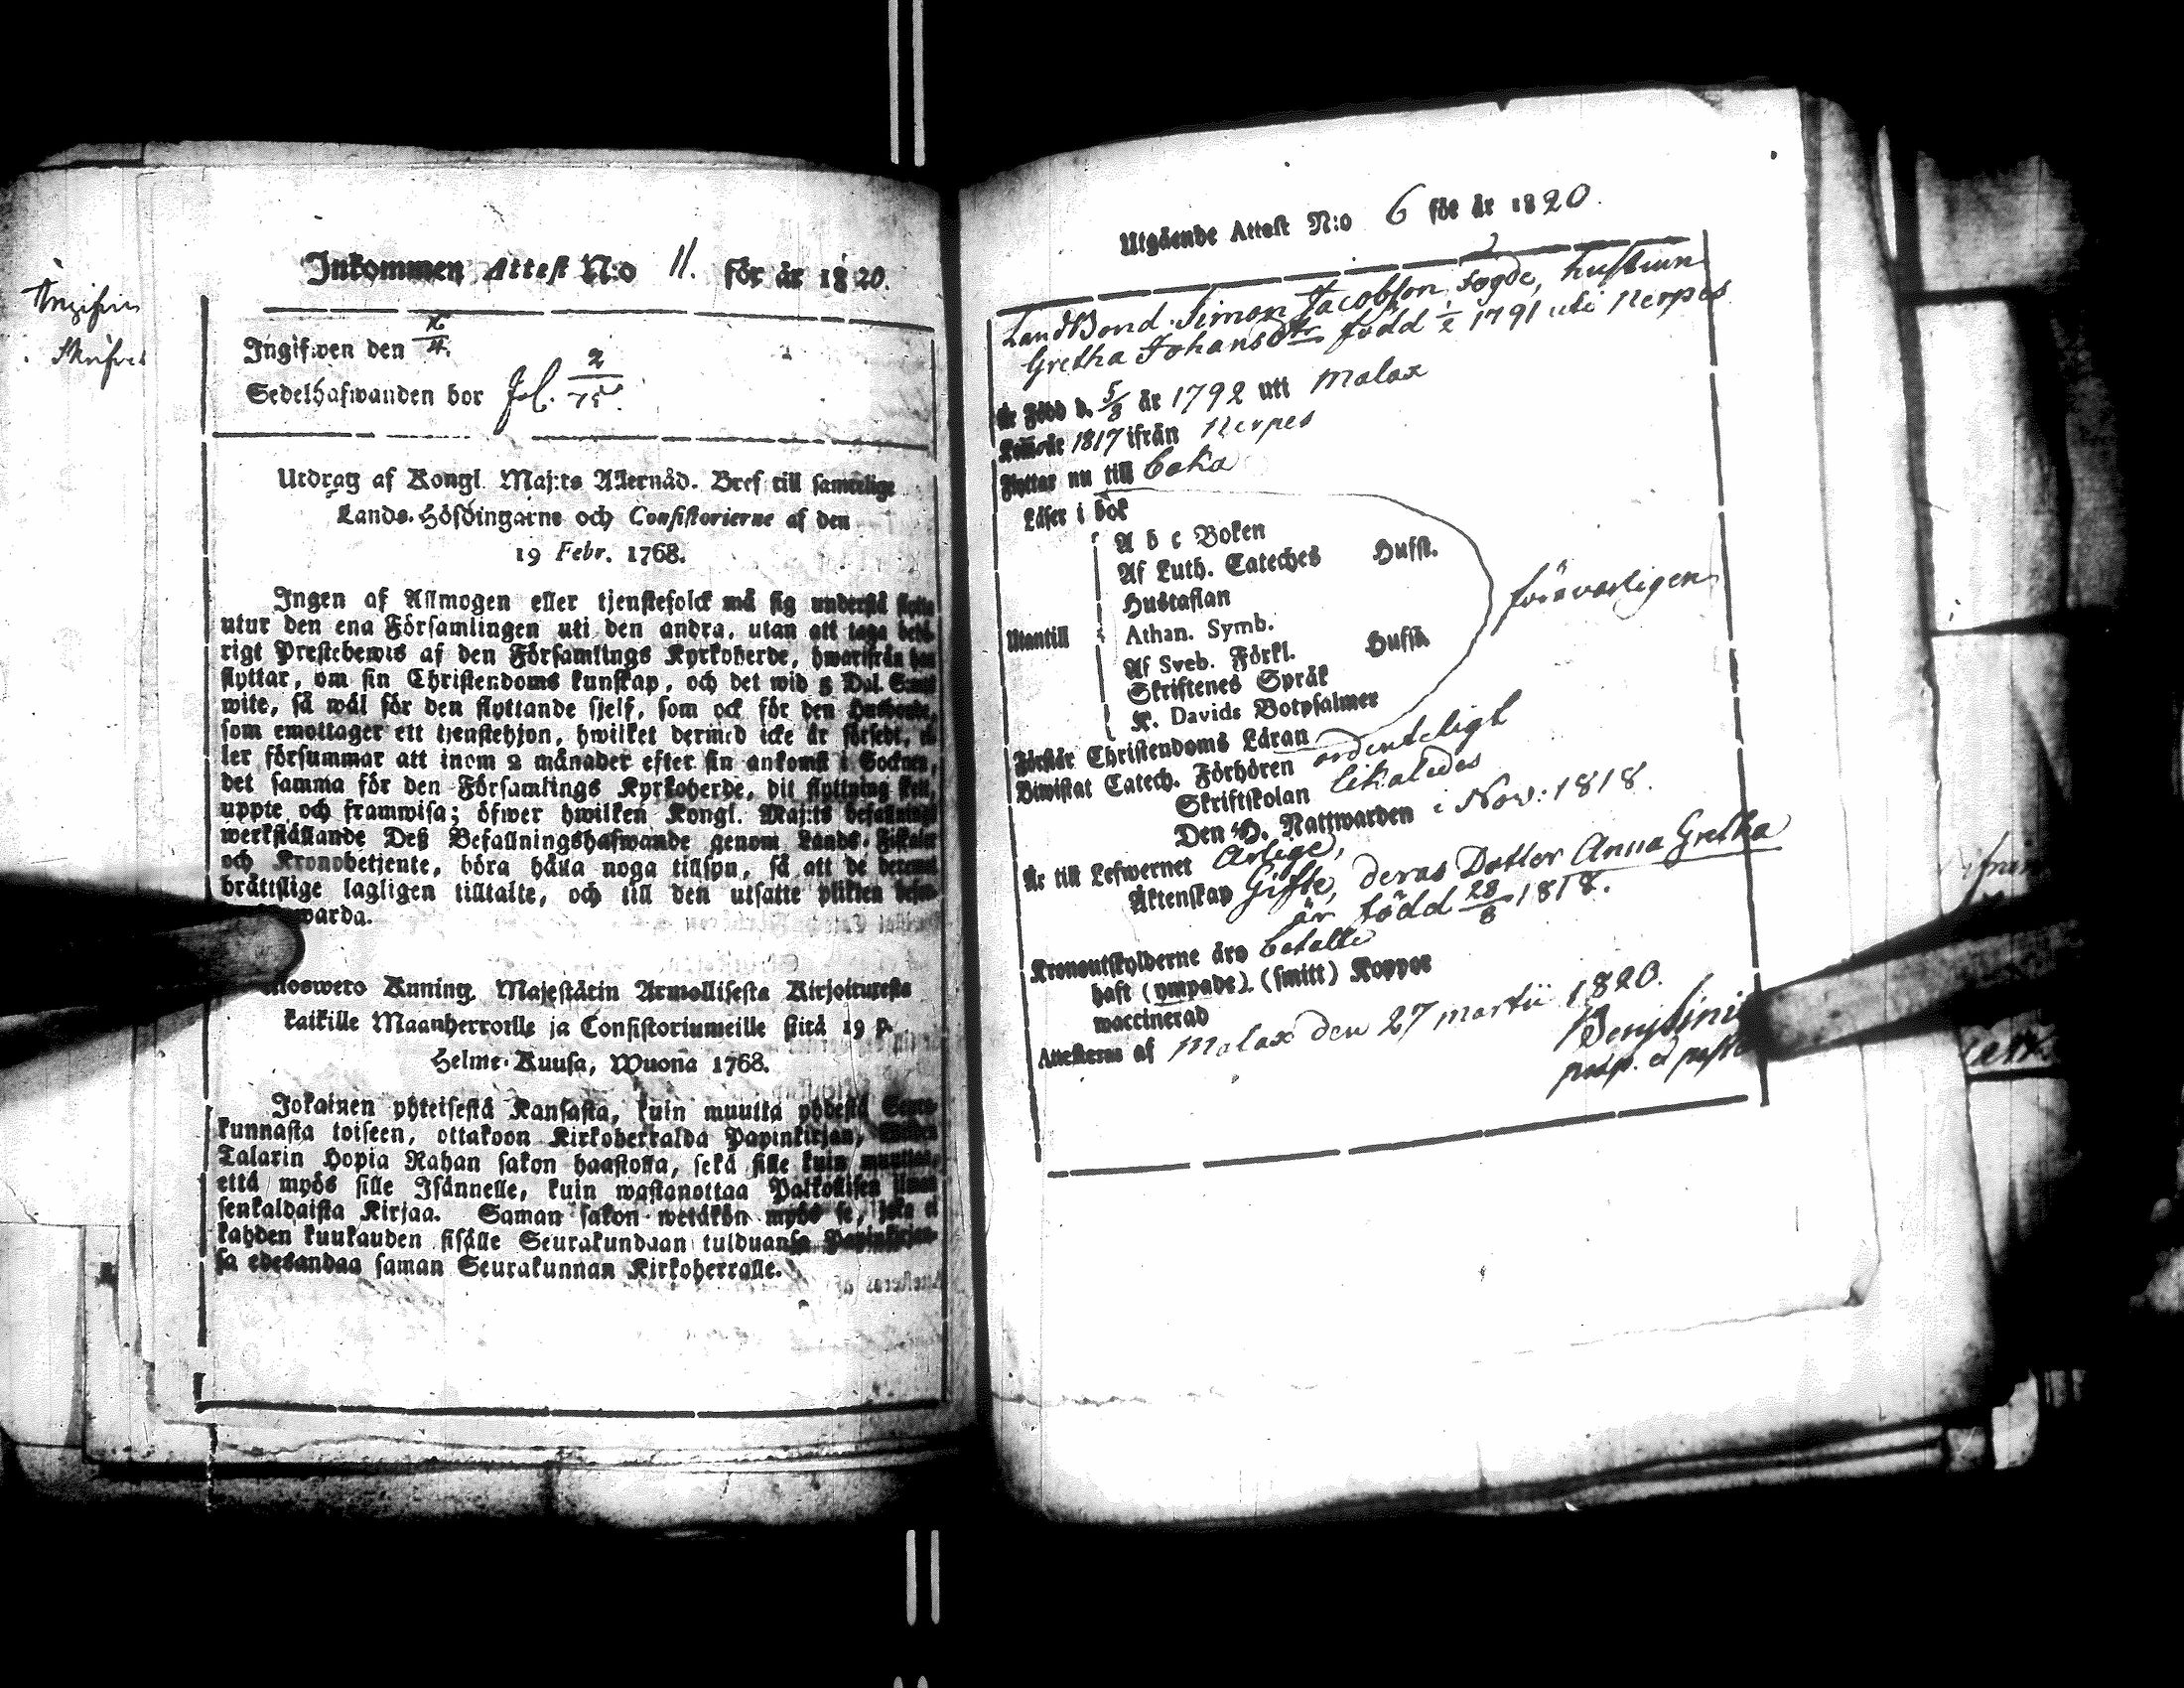 Inkommen Attest N:o 11. för år 1820.
Ingifwen den
Sedelhafwanden bor fol. 2/75.
Utdrag af Kongl. Maj:ts Allernåd. Bref till samtelige
Lands-Höfdingarne och Consistorierne af den
19 Febr. 1768.
Ingen af Allmogen eller tjenstefolck må sig understå flytta
utur den ena Församlingen uti den andra, utan att taga behö-
rigt Prestebewis af den Församlings Kyrkoherde, hwarifrån han
flyttar, om sin Christendoms kunskap, och det wid 5 Dal. S:mts
wite, så wäl för den flyttande sjelf, som ock för den Husbonde,
som emottager ett tjenstehjon, hwilket dermed icke är försedt, el-
ler försummar att inom 2 månader efter sin ankomst i Socknen,
det samma för den Församlings Kyrkoherde, dit flyttning skett,
uppte och framwisa; öfwer hwilken Kongl. Maj:ts befallnings
werkställande Deß Befallningshafwande genom Lands-Fiskaler
och Kronobetjente, böra hålla noga tillsyn, så att de deremot
bråttslige lagligen tilltalte, och till den utsatte plikten befor-
warda.
Kuning. Majestätin Armollisesta Kirjoituresta
kaikille Maanherroille ja Consistoriumeille siitä 19 p.
Helme-Kuusa, Wuona 1768.
Jokainen yhteisestä Kansasta, kuin muutta yhdestä Seura-
kunnasta toiseen, ottakoon Kirkoherralda Papinkirjan, Wiiden
Talarin Hopia Rahan sakon haastolla, sekä sille kuin muuttaa,
että myös sille Isännelle, kuin wastanottaa Palkollisen ilman
senkaldaista Kirjaa. Saman sakon wetäkön myös se, joka ei
kahden kuukauden sisälle Seurakundaan tulduansa Papinkirjan-
sa edesandaa saman Seurakunnan Kirkoherralle.
Utgående Attest N:o 6 för år 1820.
Landbond. Simon Jacobsson Sogde, hustrun
Gretha Johansdtr född 1/2 1791 uti Nerpes
Är Född d. 5/3 år 1792 utt Malax
Kom år 1817 ifrån Nerpes
Flyttar nu till
Läser i bok
A b c Boken
Af Luth. Cateches Husst.
Hustaflan
Utantill Athan. Symb. förswarligen
Af Sveb. Förkl. Husst.
Skriftenes Språk
K. Davids Botpsalmer
Förstår Christendoms Läran
Biwistat Catech. Förhören ordenteligt
Skriftskolan likaledes
Den H. Nattwarden i Nov: 1818.
Är till Lefwernet Ärlige,
Äktenskap Gifte, deras Dotter Anna Gretha
är född 28/8 1818.
Kronoutskylderne äro betalte
haft (ympade) (smitt) Koppor
waccinerad
Attesteras af Malax den 27 martii 1820.